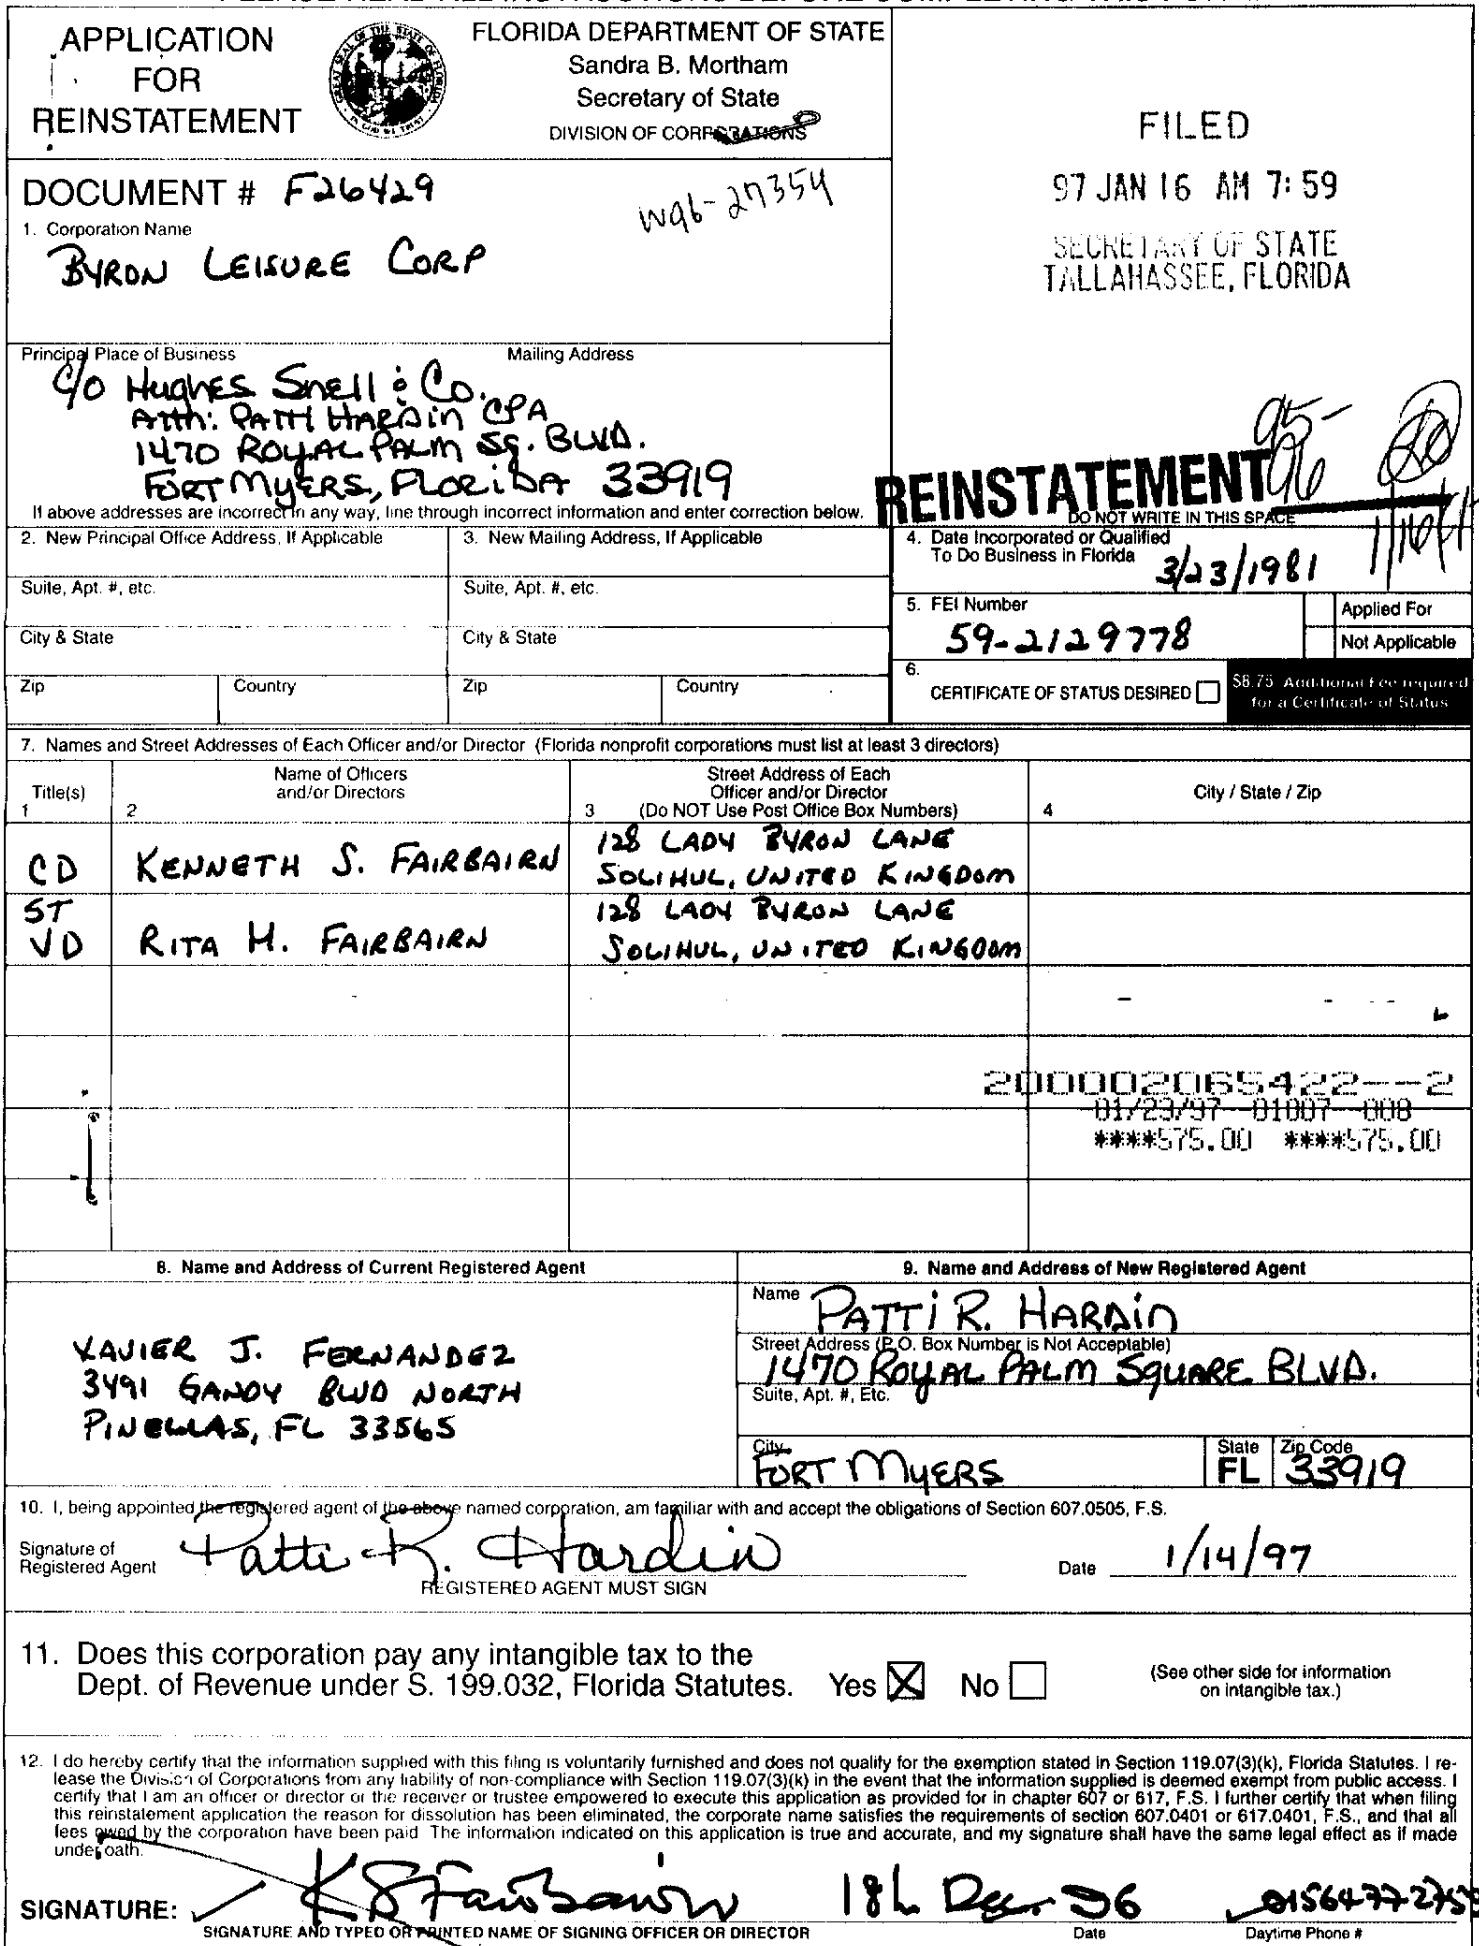 APPLICATION
FOR
REINSTATEMENT
FLORIDA DEPARTMENT OF STATE
Sandra B. Mortham
Secretary of State
DIVISION OF CORPORATIONS
FILED
97 JAN 16 AM 7:59
SECRETARY OF STATE
TALLAHASSEE, FLORIDA
DOCUMENT # F26429
W96-27354
1. Corporation Name
BYRON LEISURE CORP
Principal Place of Business
Mailing Address
C/O Hughes Snell & Co.
Attn: PATTI HARDIN CPA
1470 ROYAL PALM SQ. BLVD.
FORT MYERS, FLORIDA 33919
If above addresses are incorrect in any way, line through incorrect information and enter correction below.
95-
96
REINSTATEMENT
DO NOT WRITE IN THIS SPACE
2. New Principal Office Address, If Applicable
3. New Mailing Address, If Applicable
4. Date Incorporated or Qualified
To Do Business in Florida
3/23/1981
Suite, Apt. #, etc.
Suite, Apt. #, etc.
5. FEI Number
59-2129778
Applied For
Not Applicable
City & State
City & State
6.
CERTIFICATE OF STATUS DESIRED
$8.75 Additional Fee required
for a Certificate of Status
Zip
Country
Zip
Country
7. Names and Street Addresses of Each Officer and/or Director (Florida nonprofit corporations must list at least 3 directors)
Title(s)
1
Name of Officers
and/or Directors
2
Street Address of Each
Officer and/or Director
3 (Do NOT Use Post Office Box Numbers)
City / State / Zip
4
CD KENNETH S. FAIRBAIRN
128 LADY BYRON LANE
SOLIHUL, UNITED KINGDOM
ST
VD RITA H. FAIRBAIRN
128 LADY BYRON LANE
SOLIHUL, UNITED KINGDOM
200002065422--2
-01/23/97--01007--008
****575.00 ****575.00
8. Name and Address of Current Registered Agent
XAVIER J. FERNANDEZ
3491 GANDY BLVD NORTH
PINELLAS, FL 33565
9. Name and Address of New Registered Agent
Name
PATTI R. HARDIN
Street Address (P.O. Box Number is Not Acceptable)
1470 ROYAL PALM SQUARE BLVD.
Suite, Apt. #, Etc.
City
FORT MYERS
State
FL
Zip Code
33919
10. I, being appointed the registered agent of the above named corporation, am familiar with and accept the obligations of Section 607.0505, F.S.
Signature of
Registered Agent
Patti R. Hardin
REGISTERED AGENT MUST SIGN
Date 1/14/97
11. Does this corporation pay any intangible tax to the
Dept. of Revenue under S. 199.032, Florida Statutes. Yes X No
(See other side for information
on intangible tax.)
12. I do hereby certify that the information supplied with this filing is voluntarily furnished and does not qualify for the exemption stated in Section 119.07(3)(k), Florida Statutes. I re-
lease the Division of Corporations from any liability of non-compliance with Section 119.07(3)(k) in the event that the information supplied is deemed exempt from public access. I
certify that I am an officer or director or the receiver or trustee empowered to execute this application as provided for in chapter 607 or 617, F.S. I further certify that when filing
this reinstatement application the reason for dissolution has been eliminated, the corporate name satisfies the requirements of section 607.0401 or 617.0401, F.S., and that all
fees owed by the corporation have been paid. The information indicated on this application is true and accurate, and my signature shall have the same legal effect as if made
under oath.
SIGNATURE:
K S Fairbairn
18th Dec. 96
SIGNATURE AND TYPED OR PRINTED NAME OF SIGNING OFFICER OR DIRECTOR
Date
Daytime Phone #